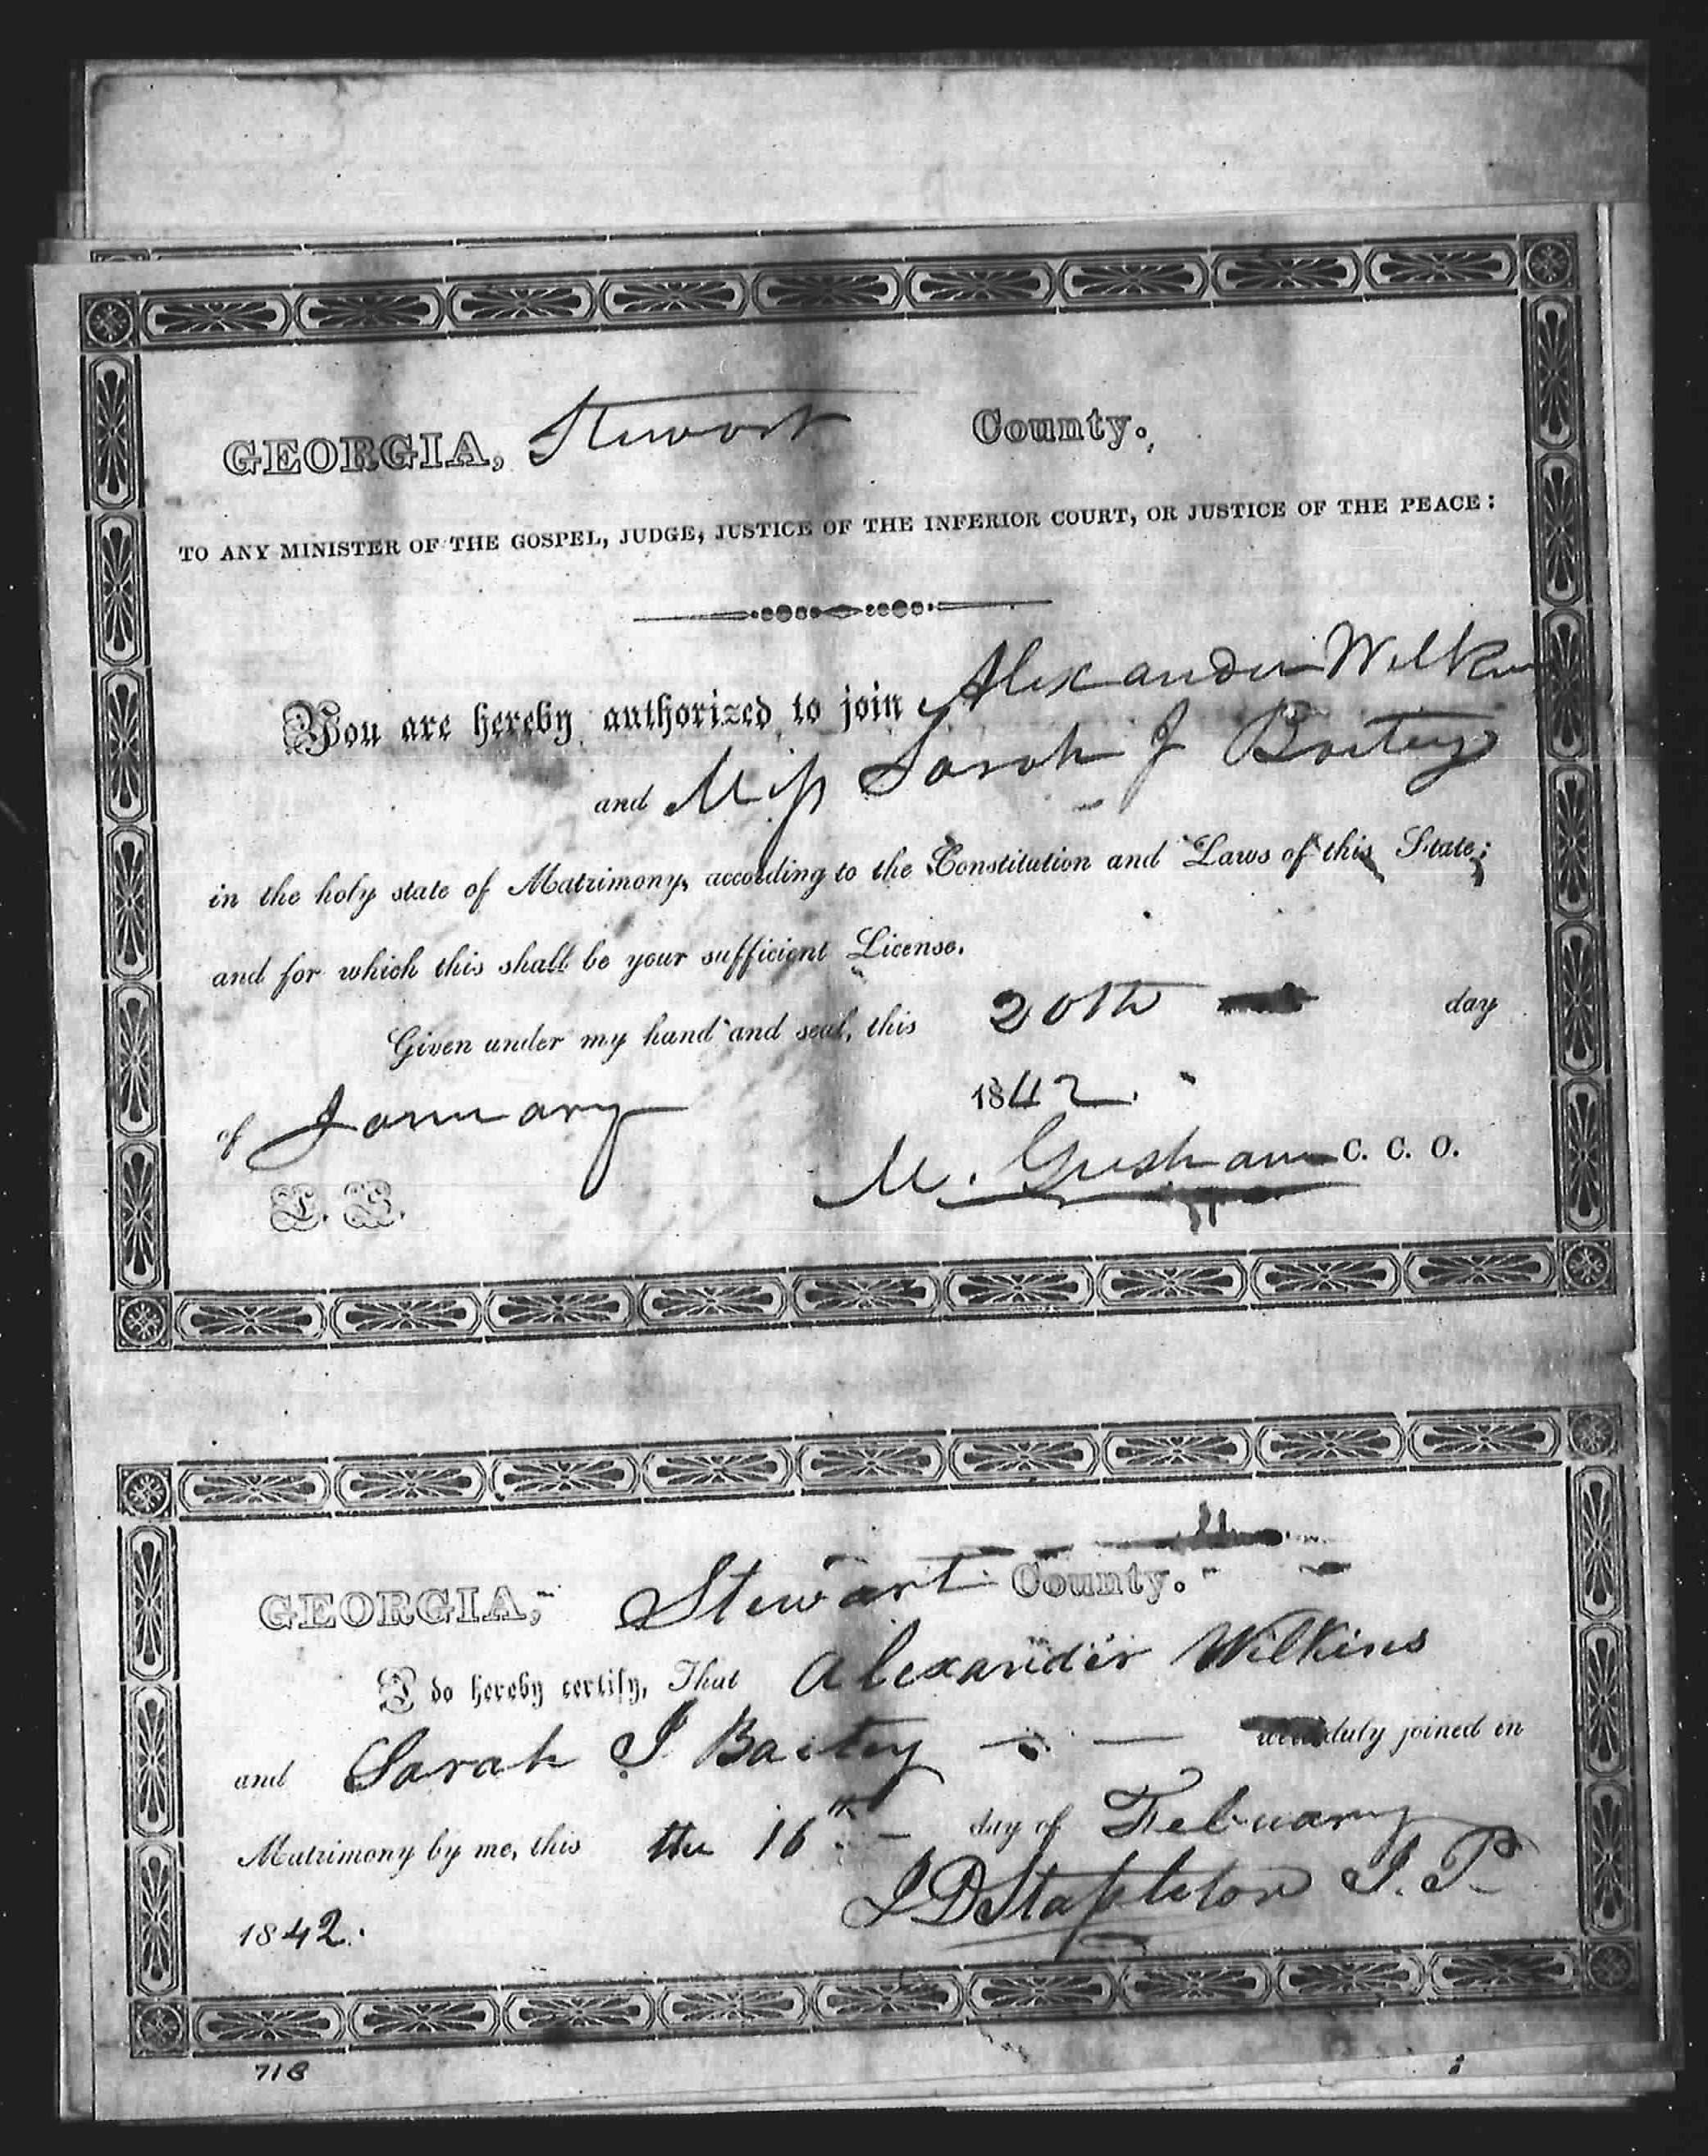 GEORGIA, Stewart County.
TO ANY MINISTER OF THE GOSPEL, JUDGE, JUSTICE OF THE INFERIOR COURT, OR JUSTICE OF THE PEACE:
You are hereby authorized to join Alexander Wilkins
and Miss Sarah J
in the holy state of Matrimony, according to the Constitution and Laws of this State;
and for which this shall be your sufficient License.
Given under my hand and seal, this 20th day
of January 1842.
L. S. M. Gresham C. C. O.
GEORGIA, Stewart County.
I do hereby certify, That Alexander Wilkins
and Sarah J were duly joined in
Matrimony by me, this the 16th day of Febuary
1842. J D Stapleton J. P.
718